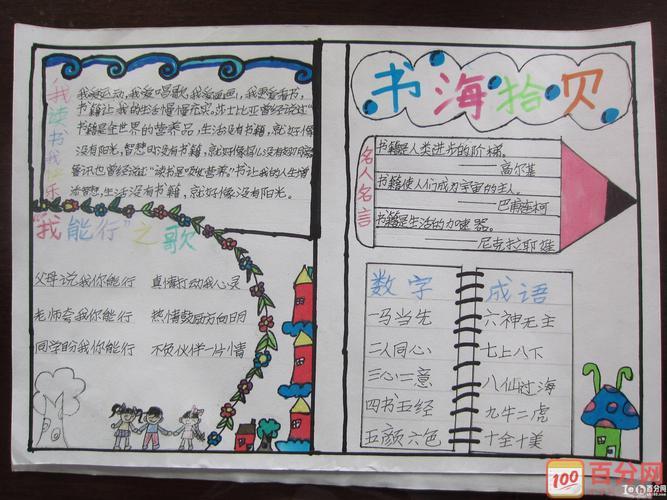 我读书我快乐
我爱运动,我爱唱歌,我爱画画,我更爱看书,
书籍让我的生活慢慢充实。莎士比亚曾经说过"
书籍是全世界的营养品,生活没有书籍,就好像
没有阳光,智慧
没有书籍,就好像
鲁讯也曾经说过"读书是吸收营养"书让我的人生增
智慧,生活没有书籍,就好像没有阳光。
"我能行"之歌
父母说我你能行 真情打动我心灵
老师夸我你能行 热情鼓励方向明
同学盼我你能行 不负伙伴一片情
书海拾贝
名人名言
书籍是人类进步的阶梯。
高尔基
书籍使人们成为宇宙的主人。
——巴甫连柯
书籍是生活的加速器。
——尼克拉耶娃
数字 成语
一马当先 六神无主
二人同心 七上八下
三心二意 八仙过海
四书五经 九牛二虎
五颜六色 十全十美
100 百分网
百分网